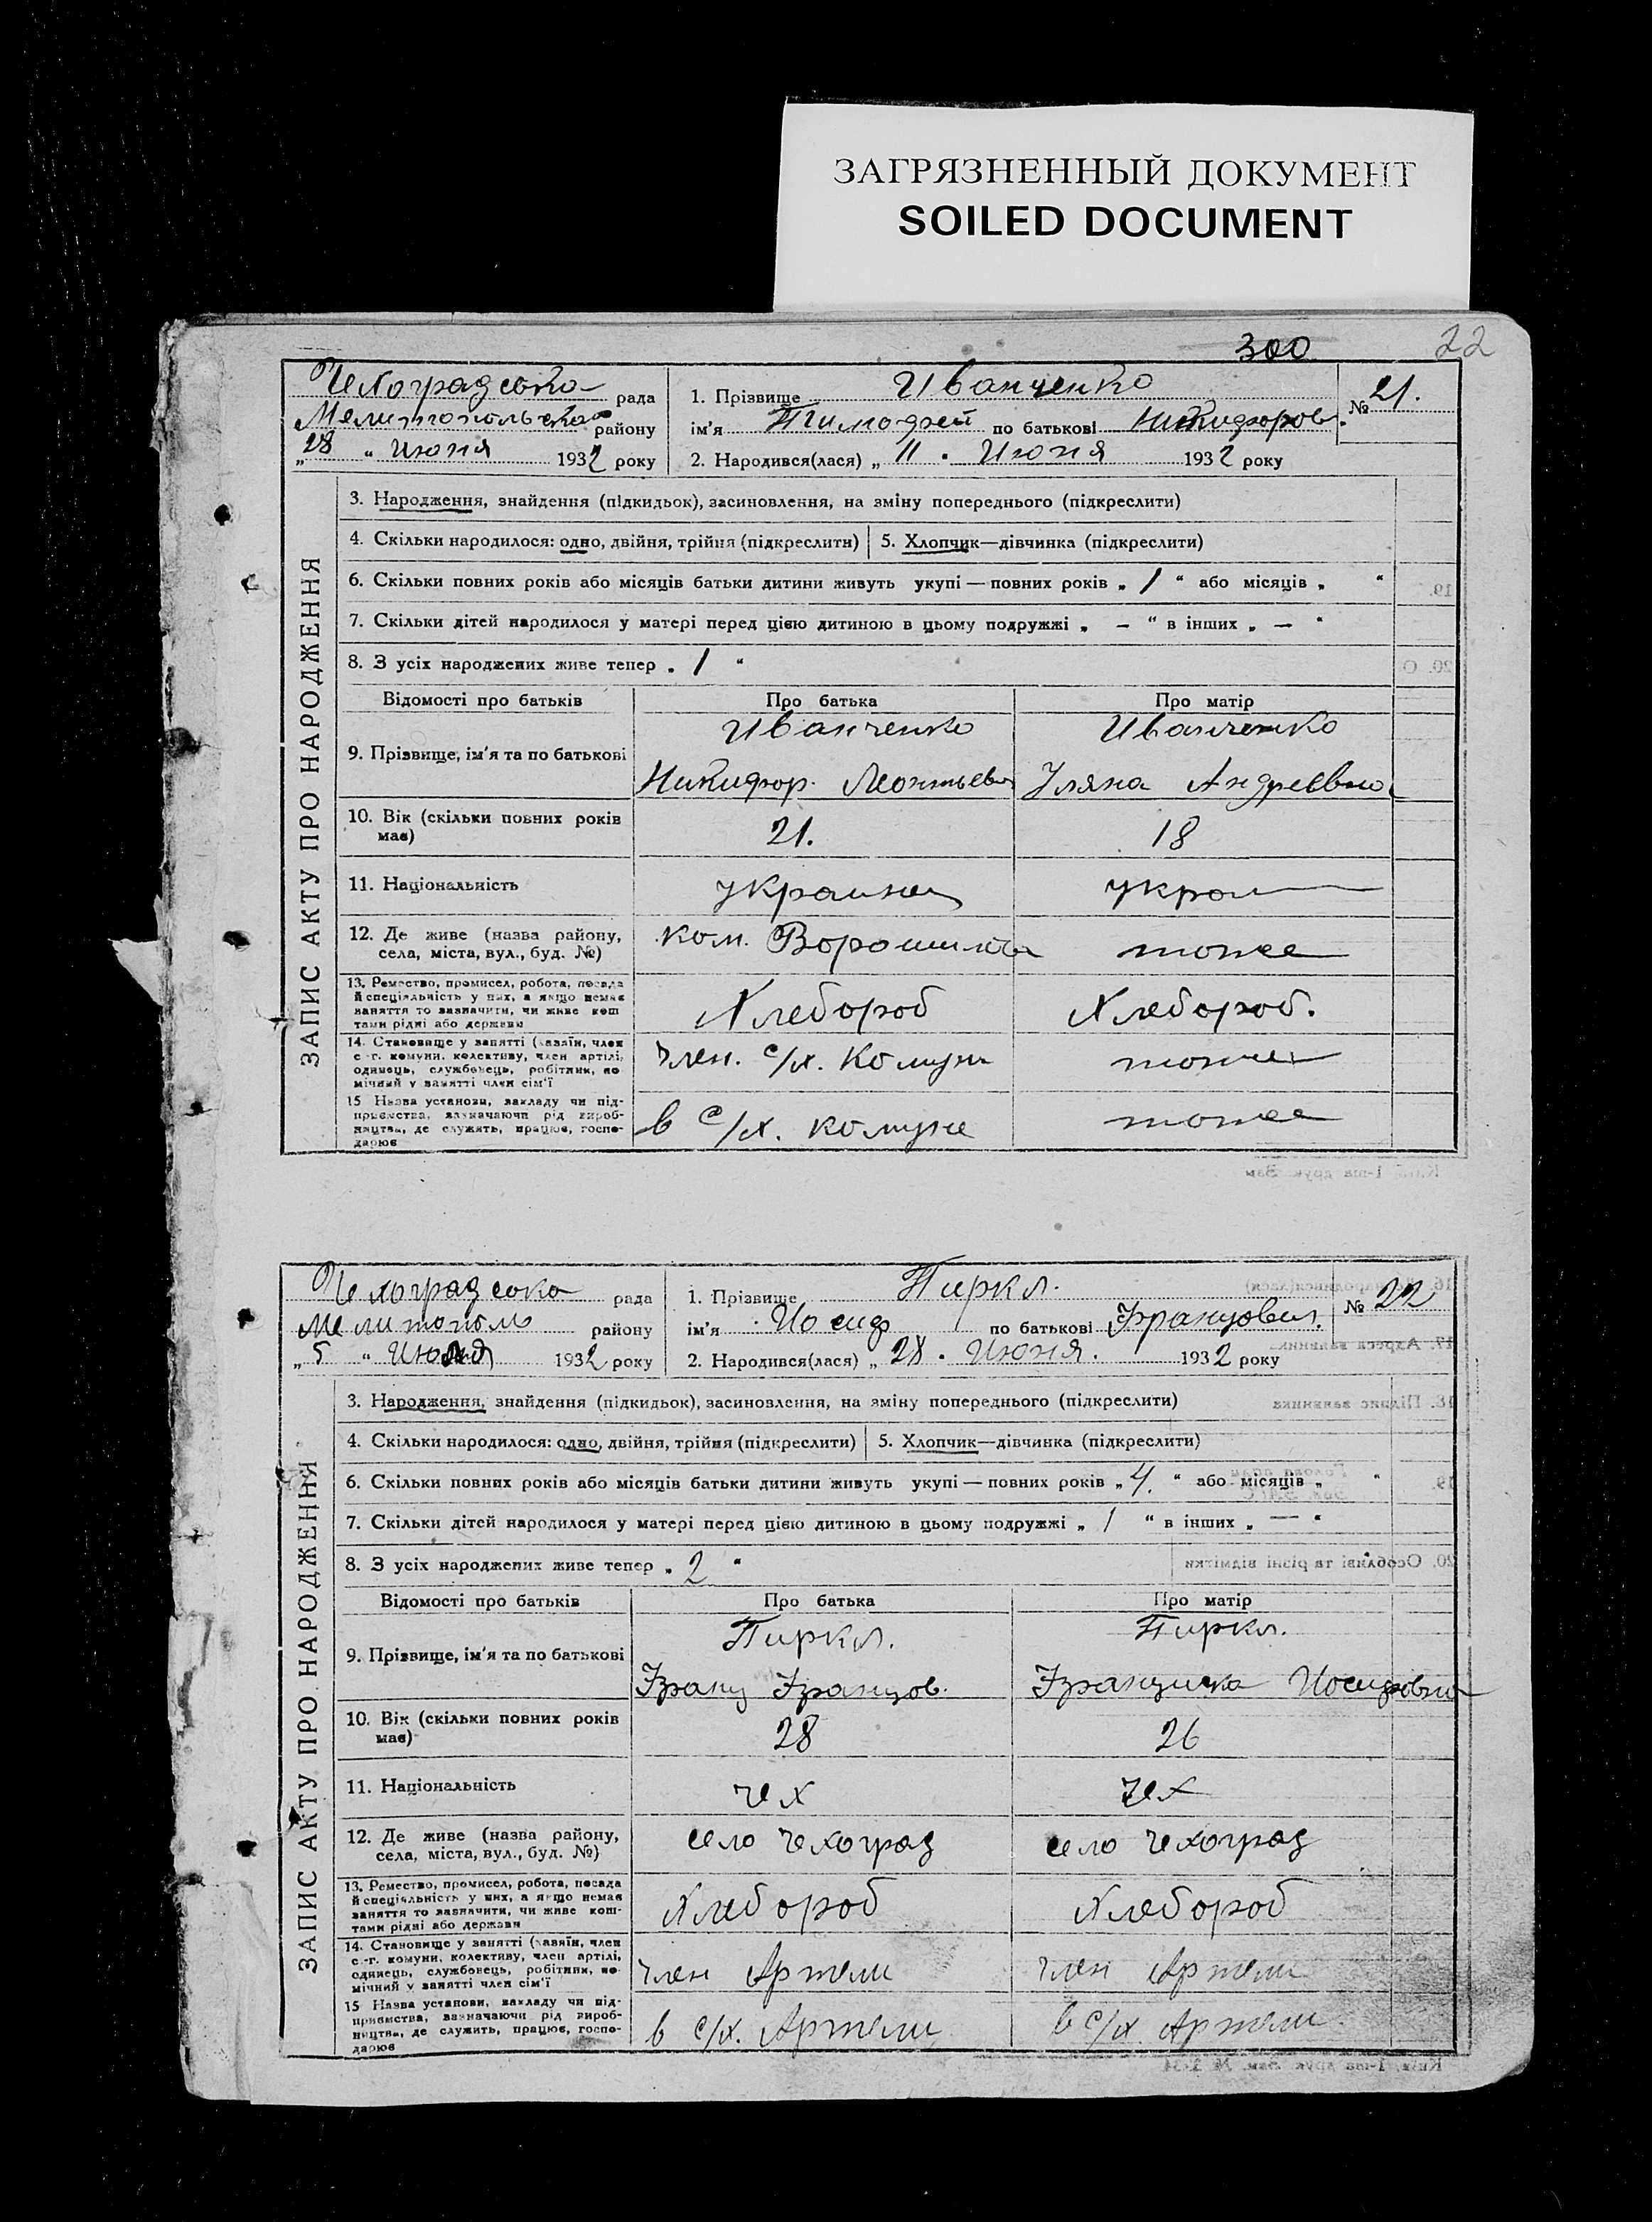 ЗАГРЯЗНЕННЫЙ ДОКУМЕНТ
SOILED DOCUMENT
300 22
Чехоградсько рада
Мелитопольско району
„28 “ Июня 1932 року
1. Прізвище Иванченко
ім'я Тимофей по батькові Никифоров.
2. Народився(лася) „ 11 . Июня 1932 року
№ 21.
ЗАПИС АКТУ ПРО НАРОДЖЕННЯ
3. Народження, знайдення (підкидьок), засиновлення, на зміну попереднього (підкреслити)
4. Скільки народилося: одно, двійня, трійня (підкреслити) 5. Хлопчик—дівчинка (підкреслити)
6. Скільки повних років або місяців батьки дитини живуть укупі — повних років „ 1 “ або місяців „ “
7. Скільки дітей народилося у матері перед цією дитиною в цьому подружжі „ — “ в інших „ — “
8. З усіх народжених живе тепер „ 1 “
Відомості про батьків Про батька Про матір
9. Прізвище, ім'я та по батькові Иванченко Иванченко
Никифор. Леонтьев Уляна Андреевна
10. Вік (скільки повних років має) 21. 18
11. Національність украинец укра
12. Де живе (назва району, села, міста, вул., буд. №) ком. Ворошилова тоже
13. Ремество, промисел, робота, посада й спеціяльність у них, а якщо немає заняття то зазначити, чи живе кош тами рідні або держави Хлебороб Хлебороб.
14. Становище у занятті (хазяїн, член с.-г. комуни, колективу, член артілі, одинець, службовець, робітник, помічний у занятті член сім'ї член. с/х. Комуны тоже
15 Назва установи, закладу чи підприємства, зазначаючи рід виробництва, де служить, працює, господарює в с/х. комуне тоже
Чехоградсько рада
Мелитополь району
„5 “ Июля 1932 року
1. Прізвище Пиркл.
ім'я Иосиф по батькові Францович.
2. Народився(лася) „ 28 . Июня. 1932 року
№ 22
ЗАПИС АКТУ ПРО НАРОДЖЕННЯ
3. Народження, знайдення (підкидьок), засиновлення, на зміну попереднього (підкреслити)
4. Скільки народилося: одно, двійня, трійня (підкреслити) 5. Хлопчик—дівчинка (підкреслити)
6. Скільки повних років або місяців батьки дитини живуть укупі — повних років „ 4. “ або місяців „ “
7. Скільки дітей народилося у матері перед цією дитиною в цьому подружжі „ 1 “ в інших „ — “
8. З усіх народжених живе тепер „ 2 “
Відомості про батьків Про батька Про матір
9. Прізвище, ім'я та по батькові Пиркл. Пиркл.
Франц Францов. Франциска Иосифовна
10. Вік (скільки повних років має) 28 26
11. Національність чех чех
12. Де живе (назва району, села, міста, вул., буд. №) село Чехоград село Чехоград
13. Ремество, промисел, робота, посада й спеціяльність у них, а якщо немає заняття то зазначити, чи живе коштами рідні або держави Хлебороб Хлебороб
14. Становище у занятті (хазяїн, член с.-г. комуни, колективу, член артілі, одинець, службовець, робітник, помічний у занятті член сім'ї член Артели член Артели
15 Назва установи, закладу чи підприємства, зазначаючи рід виробництва, де служить, працює, господарює в с/х. Артели в с/х Артели.